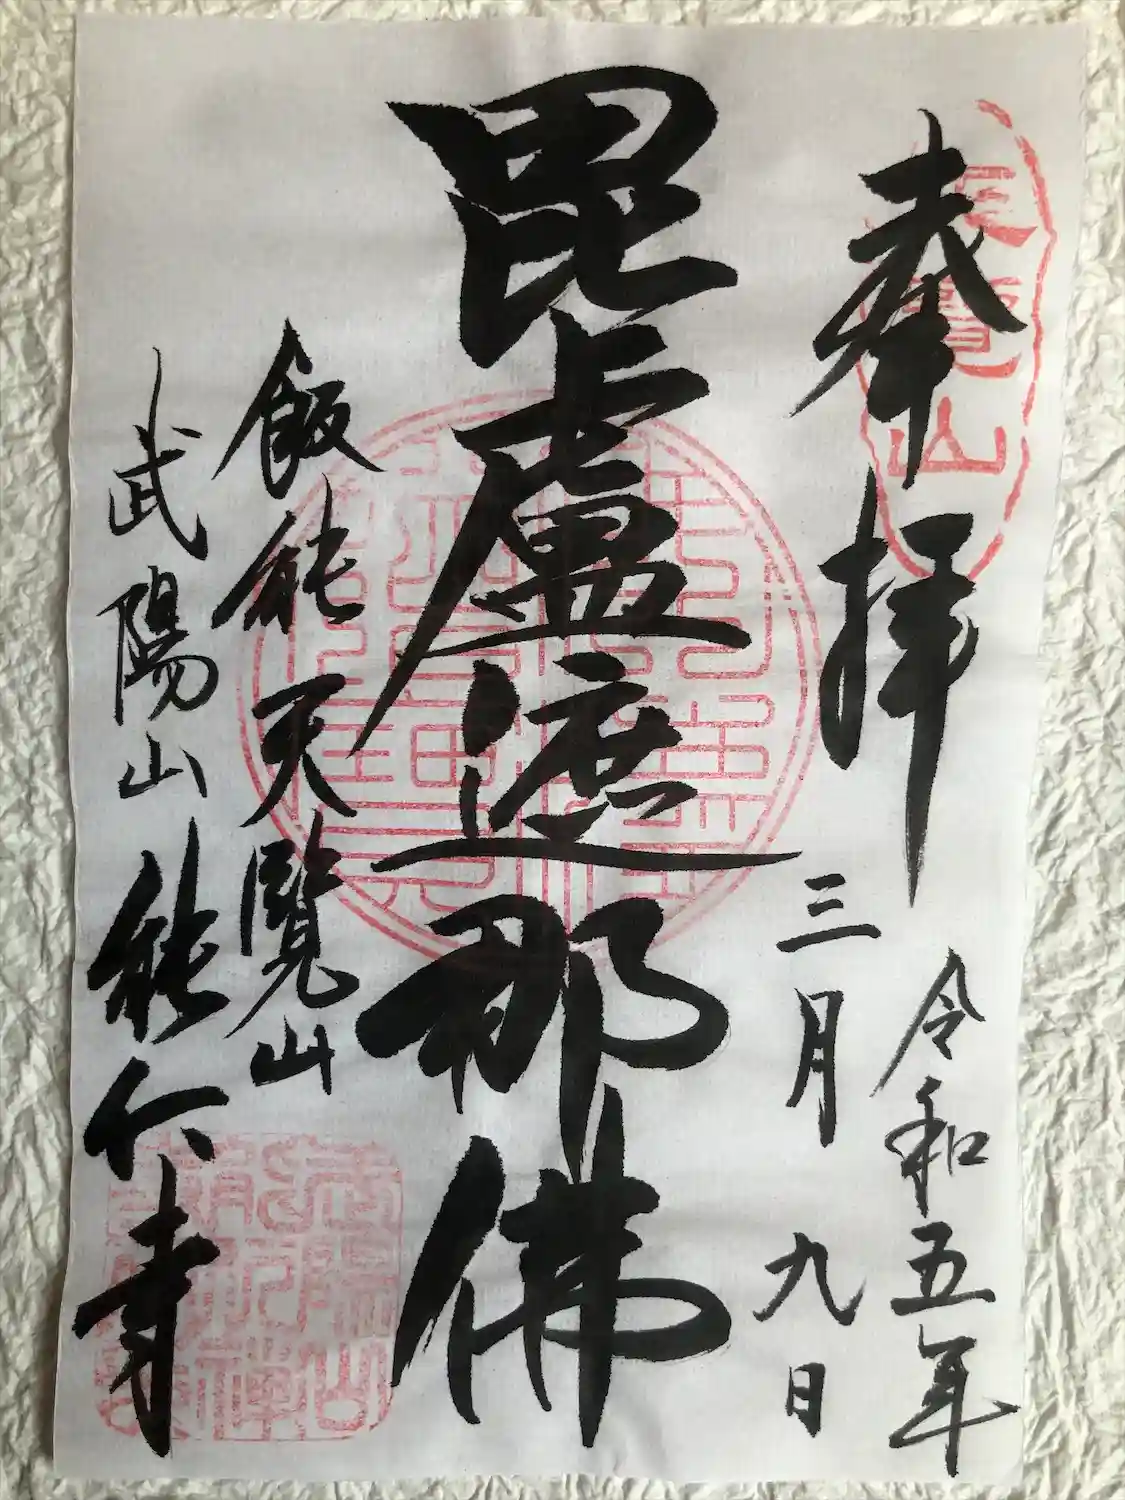 奉拝
令和五年
三月九日
毘盧遮那佛
飯能天覧山
武陽山能仁寺
天覧山